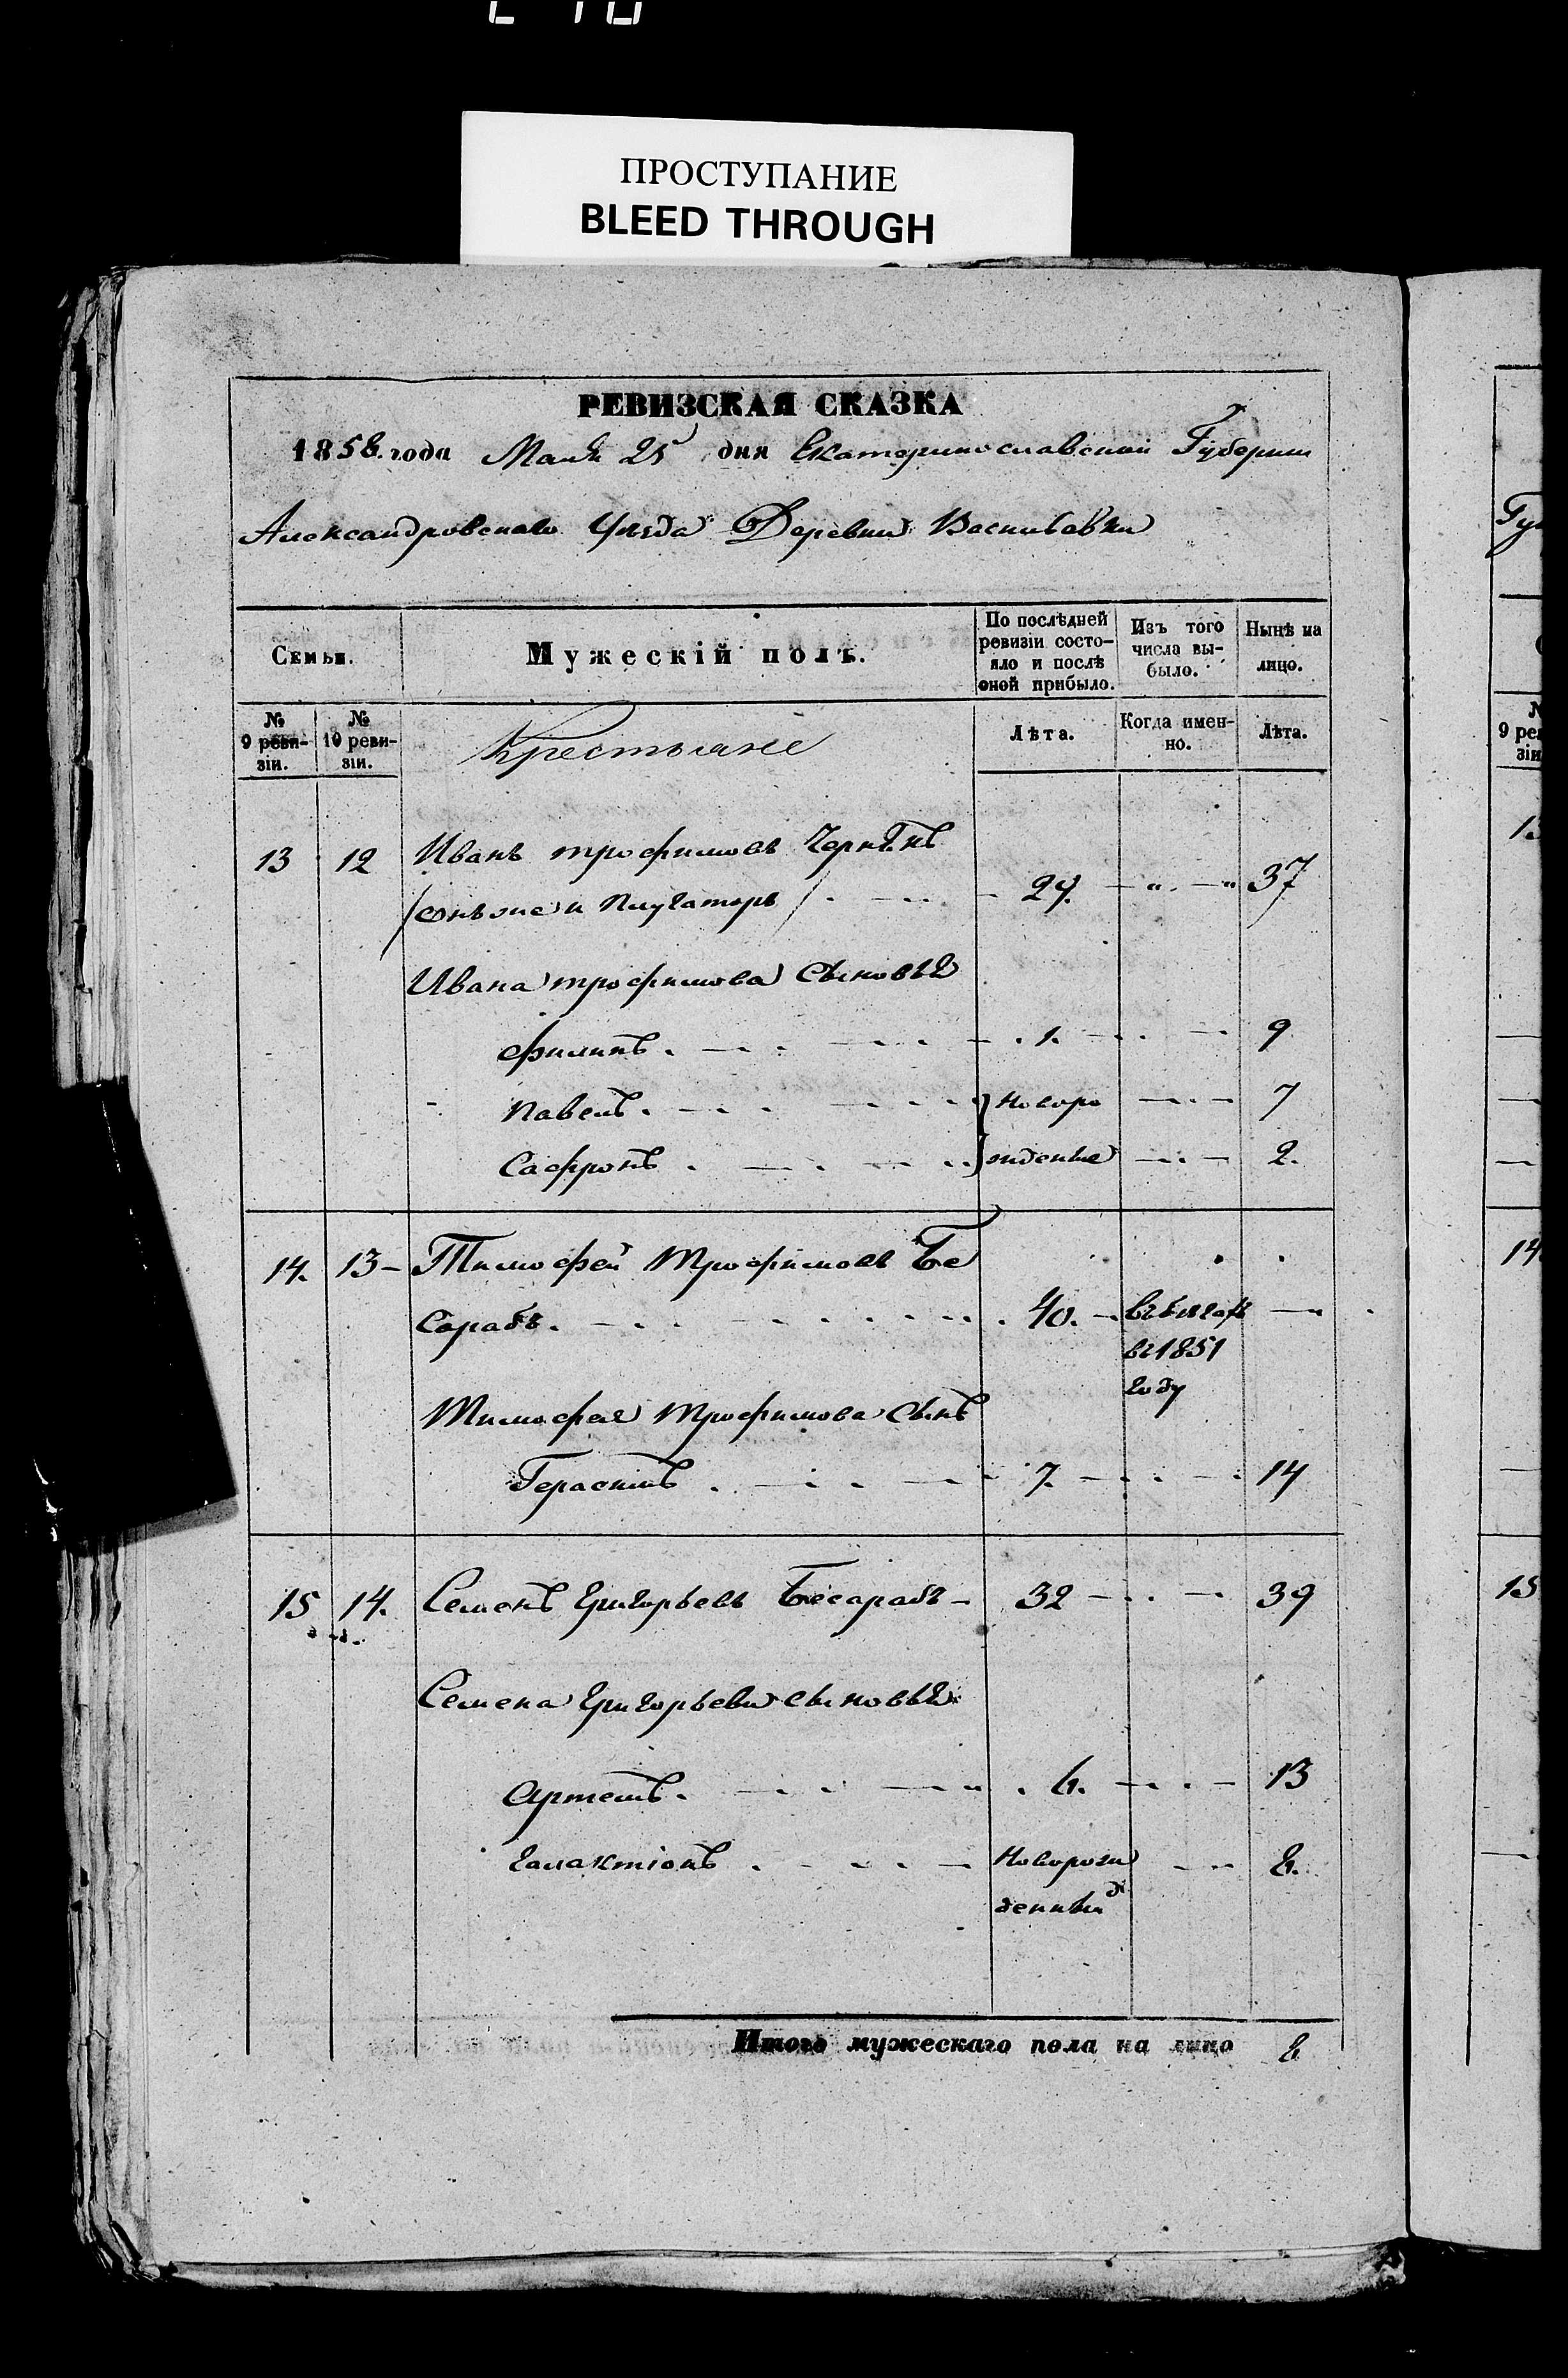 ПРОСТУПАНИЕ
BLEED THROUGH
РЕВИЗСКАЯ СКАЗКА
1858. года Маия 25 дня Екатеринославской Губернии
Александровскаго Уѣзда Деревни Васильевки
Семьи.
Мужескій полъ.
По послѣдней ревизіи состо-
яло и послѣ оной прибыло.
Изъ того числа вы-
было.
Нынѣ на лицо.
№ 9 реви-
зіи.
№ 10 реви-
зіи.
Крестьяне
Лѣта.
Когда имен-
но.
Лѣта.
13 12 Иванъ трофимовъ
/онъ же и Плугаторь/ 29. 37
Ивана трофимова Сыновья
Филипъ. 1. 9
Павелъ. Новоро 7
Сафронъ. жденые 2.
14. 13 Тимофей Трофимовъ Бе
Сарабъ. 40. въ бегах
въ 1851
году
Тимофея Трофимова Сынъ
Герасимъ. 7. 14
15 14. Семенъ Григорьевъ Бесарабъ 32 39
Семена Григорьева сыновья
Артемъ. 6. 13
Галактіонъ. Новорож 8.
денный
Итого мужескаго пола на лицо 8